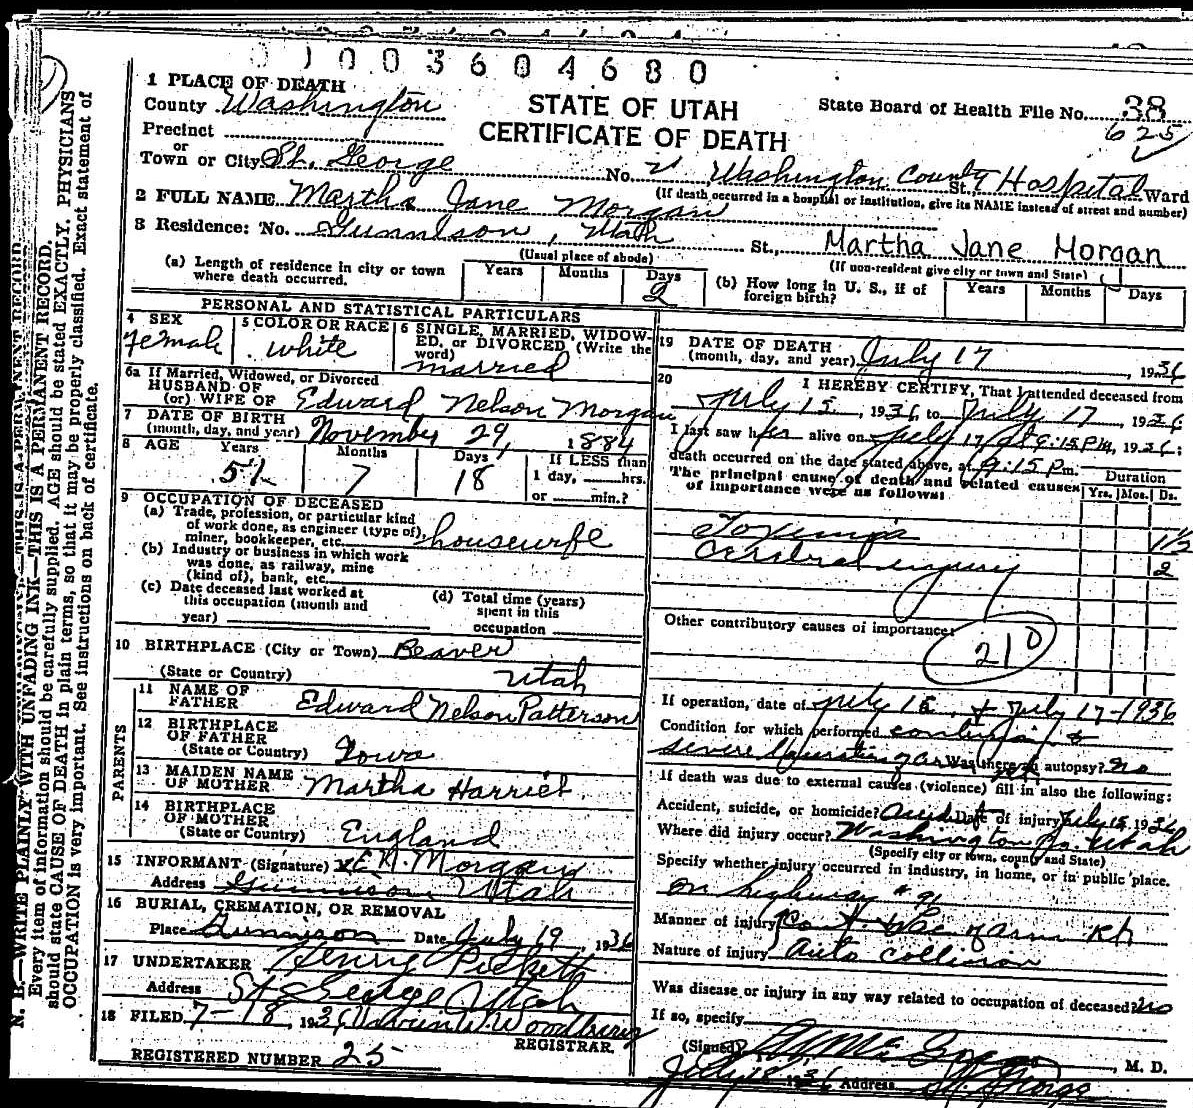 0 1 0 0 3 6 0 4 6 8 0
1 PLACE OF DEATH
County Washington
STATE OF UTAH
CERTIFICATE OF DEATH
State Board of Health File No. 38
625
Precinct
or
Town or City St. George No. Washington County St., Hospital Ward
(If death occurred in a hospital or institution, give its NAME instead of street and number)
2 FULL NAME Martha Jane Morgan
3 Residence: No. Gunnison, Utah St., Martha Jane Morgan
(Usual place of abode)
(If non-resident give city or town and State)
(a) Length of residence in city or town where death occurred. Years Months Days 2
(b) How long in U. S., if of foreign birth? Years Months Days
PERSONAL AND STATISTICAL PARTICULARS
4 SEX Female
5 COLOR OR RACE white
6 SINGLE, MARRIED, WIDOWED, or DIVORCED (Write the word) married
6a If Married, Widowed, or Divorced
HUSBAND OF
(or) WIFE OF Edward Nelson Morgan
7 DATE OF BIRTH
(month, day, and year) November 29, 1884
8 AGE Years 51 Months 7 Days 18 If LESS than 1 day, hrs. or min.?
9 OCCUPATION OF DECEASED
(a) Trade, profession, or particular kind of work done, as engineer (type of), miner, bookkeeper, etc. housewife
(b) Industry or business in which work was done, as railway, mine (kind of), bank, etc.
(c) Date deceased last worked at this occupation (month and year)
(d) Total time (years) spent in this occupation
10 BIRTHPLACE (City or Town) Beaver
(State or Country) Utah
PARENTS
11 NAME OF FATHER Edward Nelson Patterson
12 BIRTHPLACE OF FATHER
(State or Country) Iowa
13 MAIDEN NAME OF MOTHER Martha Harriet
14 BIRTHPLACE OF MOTHER
(State or Country) England
15 INFORMANT (Signature) E N Morgan
Address Gunnison Utah
16 BURIAL, CREMATION, OR REMOVAL
Place Gunnison Date July 19, 1936
17 UNDERTAKER Henry Pickett
Address St. George Utah
18 FILED 7-18, 1936 Woodbury
REGISTRAR.
REGISTERED NUMBER 25
19 DATE OF DEATH
(month, day, and year) July 17, 1936
20 I HEREBY CERTIFY, That I attended deceased from
July 15, 1936 to July 17, 1936
I last saw her alive on July 17 at 9:15 PM, 1936;
death occurred on the date stated above, at 9:15 P m.
The principal cause of death and related causes of importance were as follows:
Duration
Yrs. Mos. Ds.
Toxemia 1½
Cerebral injury 2
Other contributory causes of importance:
210
If operation, date of July 15 + July 17-1936
Condition for which performed contusion &
severe of arm Was there an autopsy? no
If death was due to external causes (violence) fill in also the following:
Accident, suicide, or homicide? Accid Date of injury July 15 1936
Where did injury occur? Washington Co. Utah
(Specify city or town, county and State)
Specify whether injury occurred in industry, in home, or in public place.
On highway #91
Manner of injury Cont. + of arm Rt
Nature of injury Auto Collision
Was disease or injury in any way related to occupation of deceased? no
If so, specify
(Signed) M. D.
July 18 1936 Address St. George
N. B.—WRITE PLAINLY WITH UNFADING INK—THIS IS A PERMANENT RECORD.
Every item of information should be carefully supplied. AGE should be stated EXACTLY. PHYSICIANS
should state CAUSE OF DEATH in plain terms, so that it may be properly classified. Exact statement of
OCCUPATION is very important. See instructions on back of certificate.